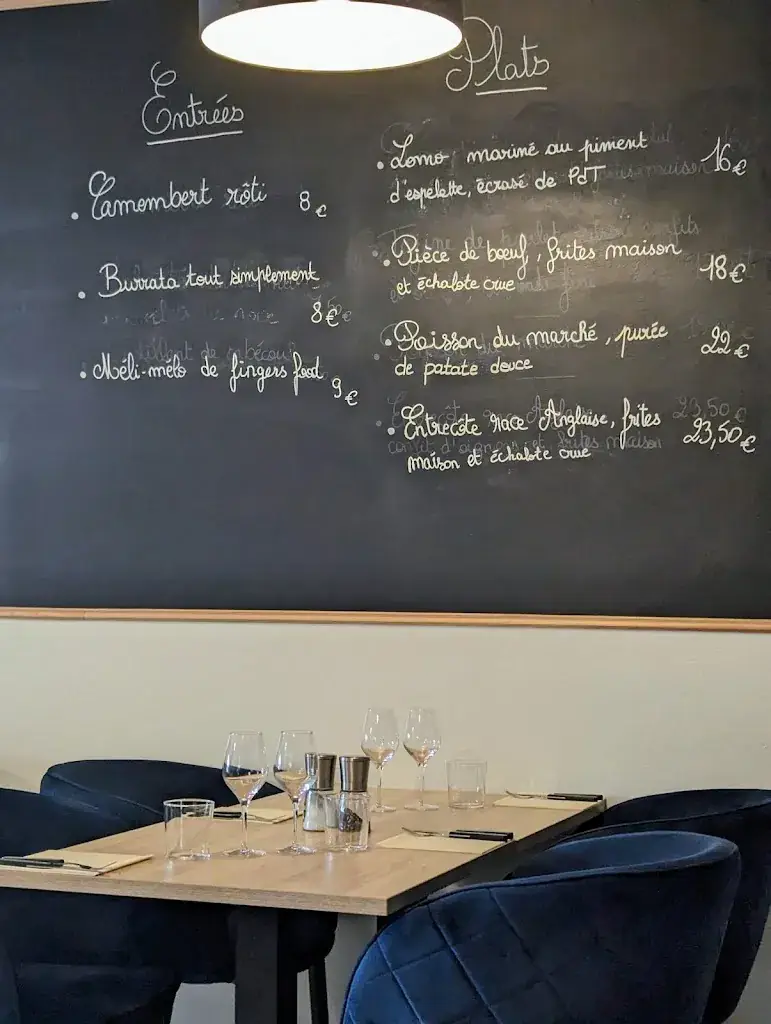 Entrées
• Camembert rôti 8€
• Burrata tout simplement
8€
• Méli-mélo de fingers food 9€
Plats
• Lomo mariné au piment 16€
d'espelette, écrasé de PdT
• Pièce de bœuf, frites maison 18€
et échalote crue
• Poisson du marché, purée 22€
de patate douce
• Entrecôte race Anglaise, frites 23,50€
maison et échalote crue